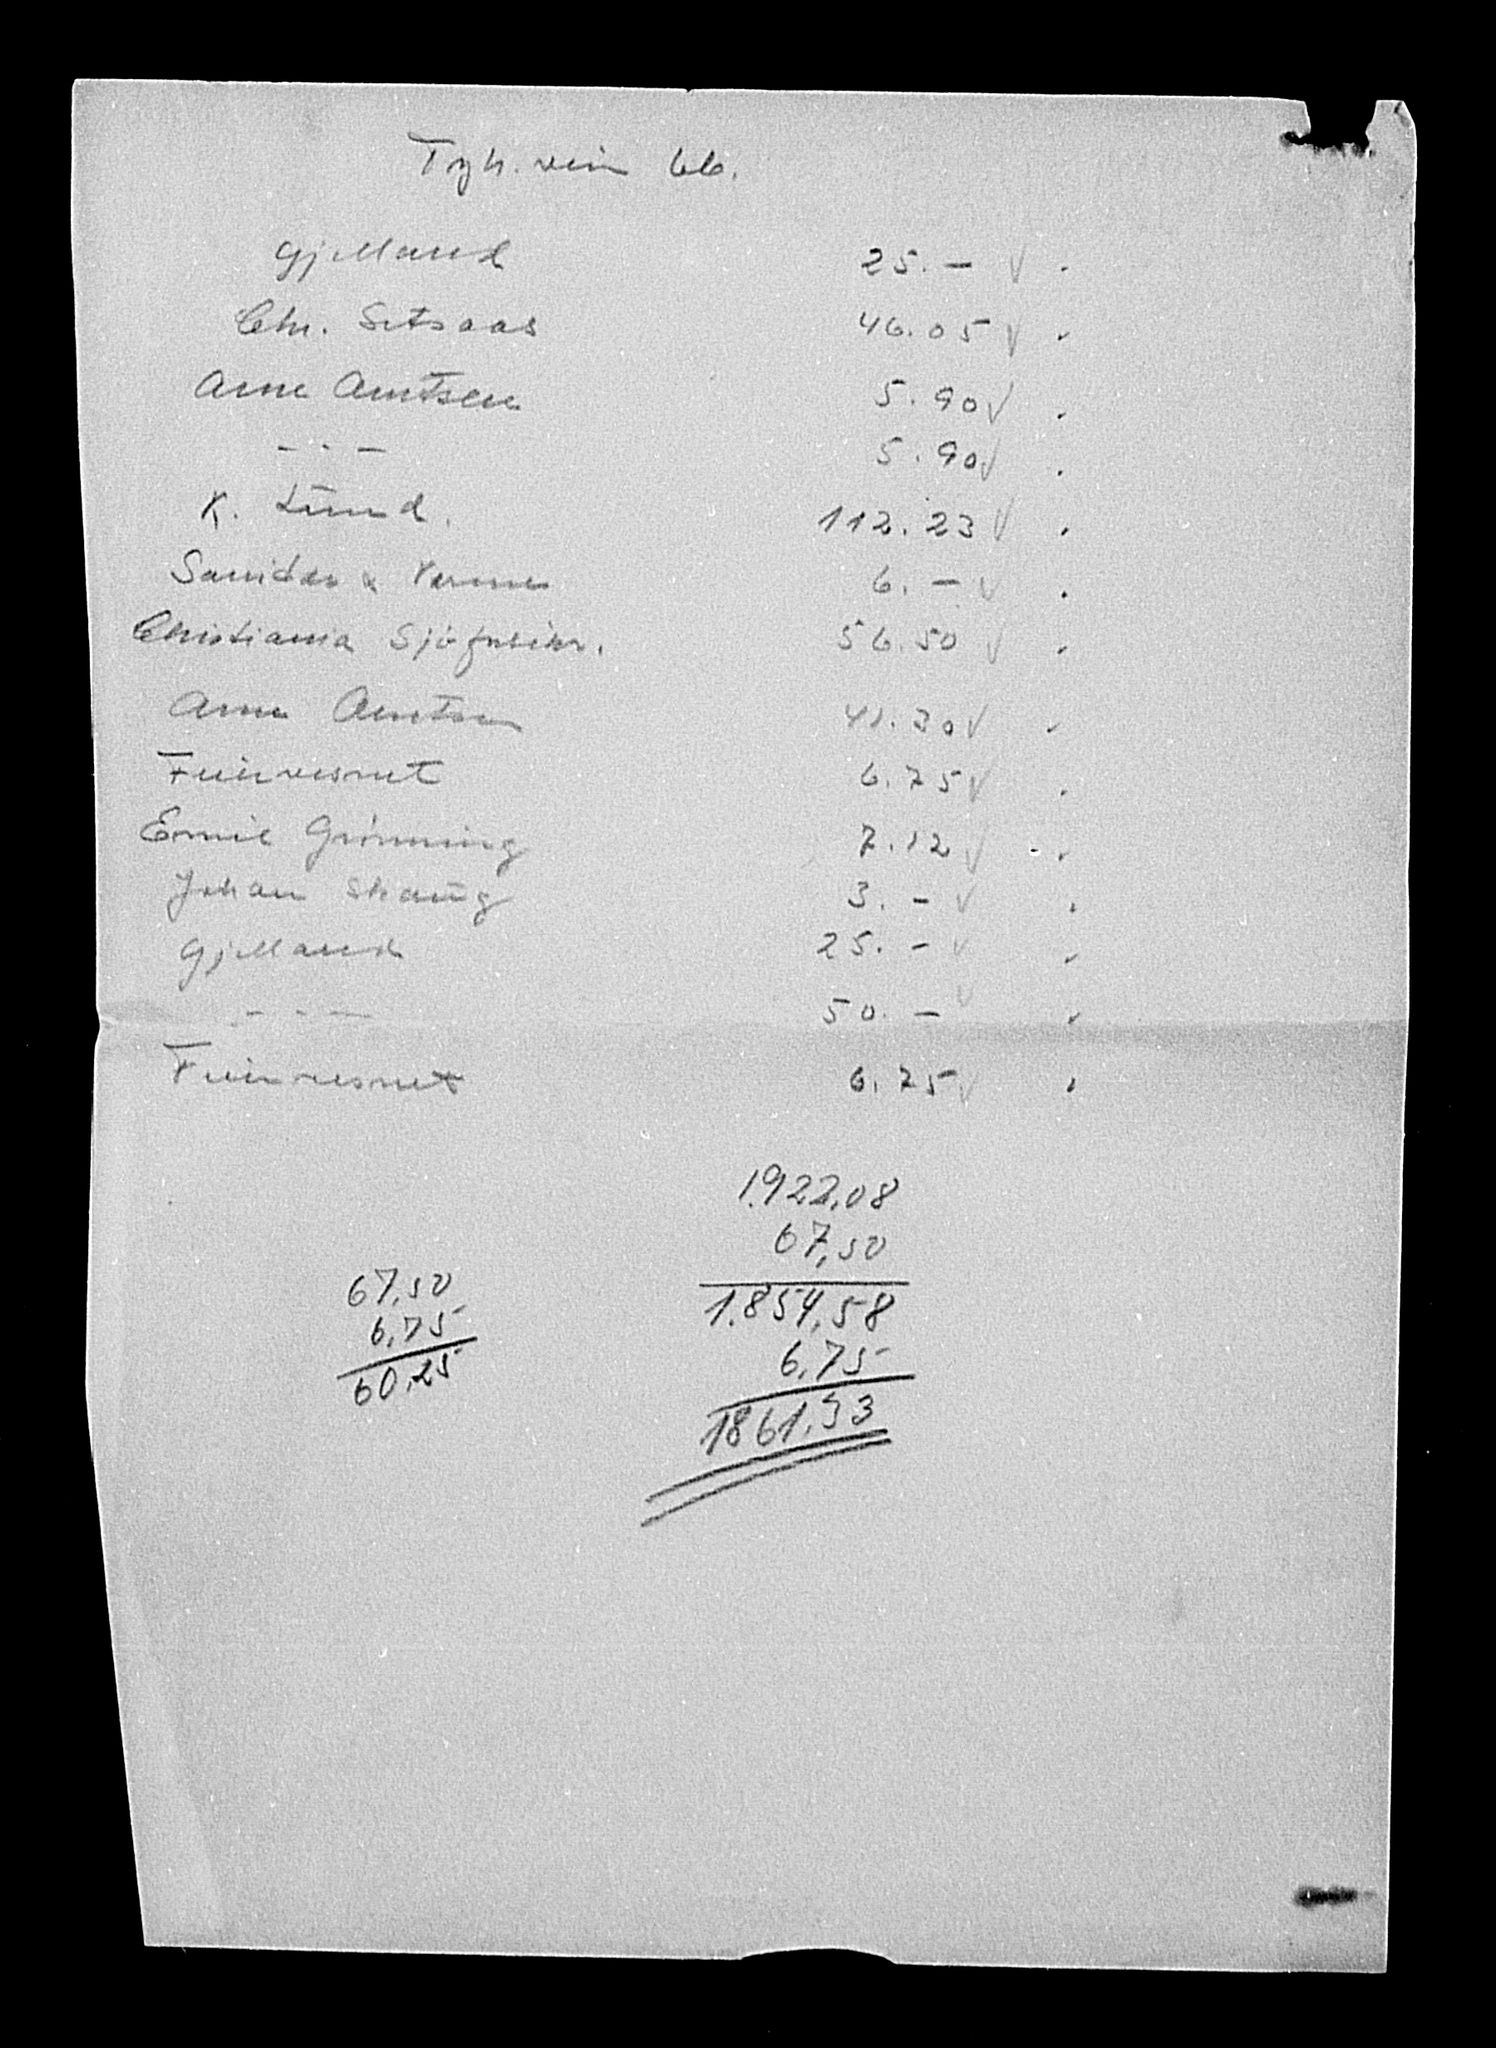 Tryh. vein 66.
Gjelland 25.- √
Chr. Setsaas 46.05 √
Arne Arntsen 5.90 √
- · - 5.90 √
K. Lund. 112.23 √
Sanitær & Varme 6.- √
Christiania Sjøforsikr. 56.50 √
Arne Arntsen 41.30 √
Fuirvesnet 6.75 √
Emil Grönning 7.12 √
Johan Skaug 3.- √
Gjelland 25.- √
- · - 50.- √
Fuirvesnet 6.75 √
1.922,08
67,50
1.854,58
6,75
1861,33
67,50
6,75
60,25